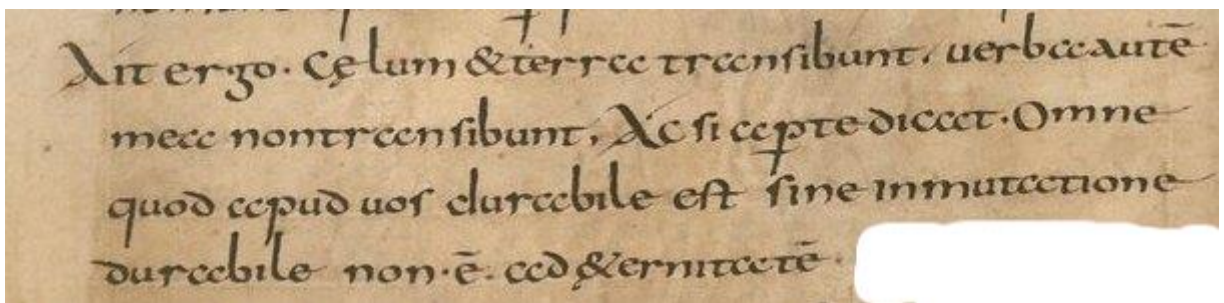 Ait ergo. Cęlum & terra transibunt, uerba autē
mea non transibunt, Ac si apte dicat. Omne
quod apud uos durabile est sine inmutatione
durabile non. ē. ad &ernitatē.